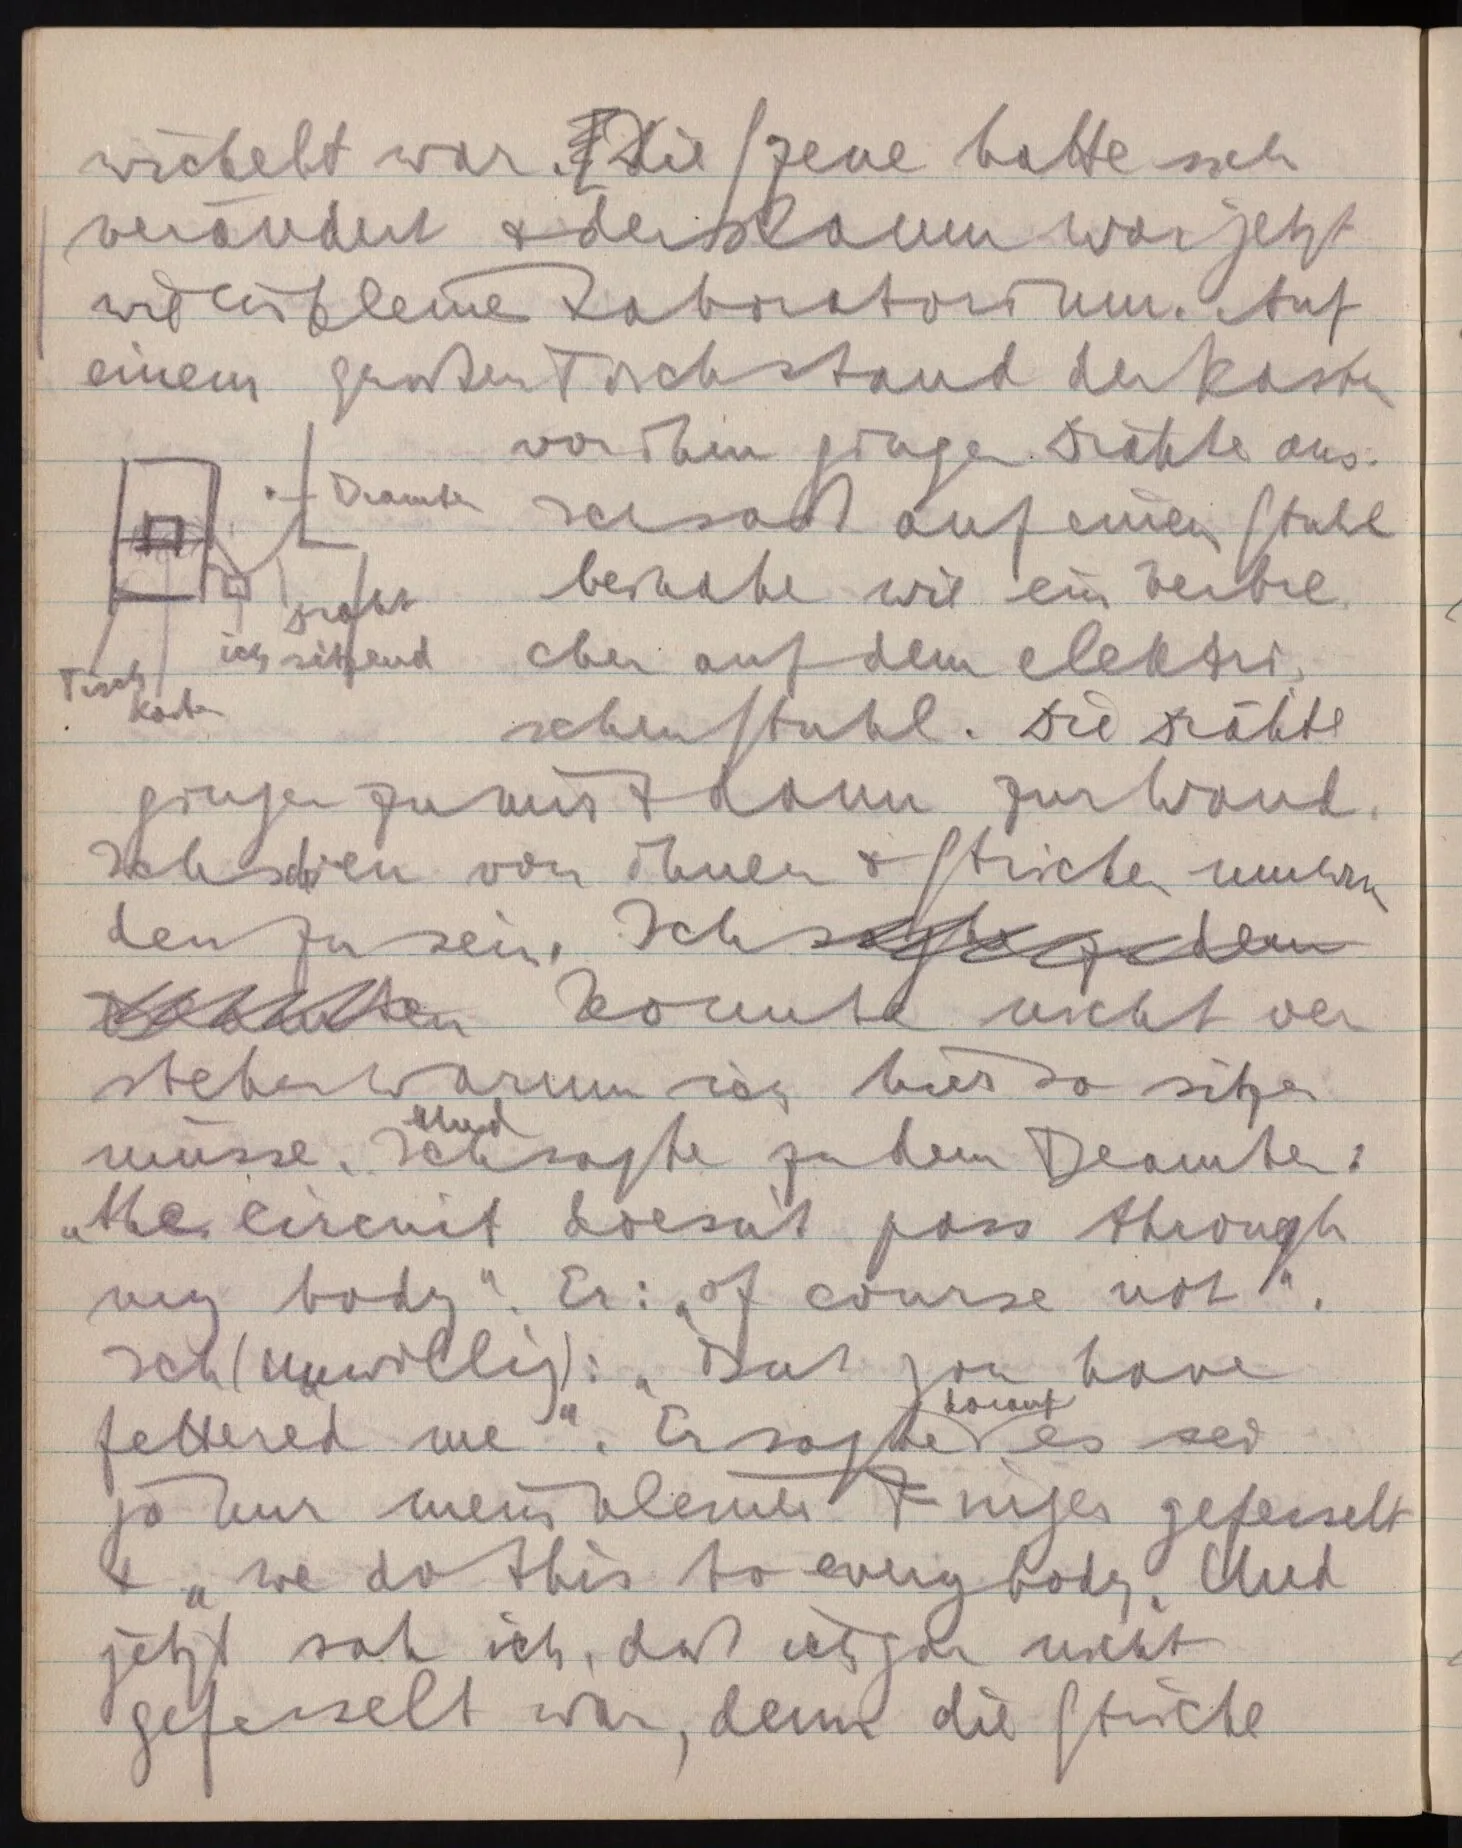 wickelt war. Die Szene hatte sich
verändert & der Raum war jetzt
wie ein kleines Laboratorium. Auf
einem großen Tisch stand der Kasten
von ihm gingen Drähte aus.
Beamter
Ich saß auf einem Stuhl
beinahe wie ein Verbre-
Draht
ich sitzend
cher auf dem elektri-
Tisch
Kasten
schen Stuhl. Die Drähte
gingen zu mir & dann zur Wand.
Ich schien von ihnen & Stricken umwun
den zu sein. Ich sagte zu dem
Beamten konnte nicht ver
stehen warum ich hier so sitzen
müsse. Und
Ich sagte zu dem Beamten:
„the circuit doesn't pass through
my body". Er: „of course not".
Ich (unwillig): „But you have
fettered me". Er sagte darauf es sei
ja nur mein kleiner Finger gefesselt
& „we do this to everybody„ Und
jetzt sah ich, daß ich gar nicht
gefesselt war, denn die Stricke